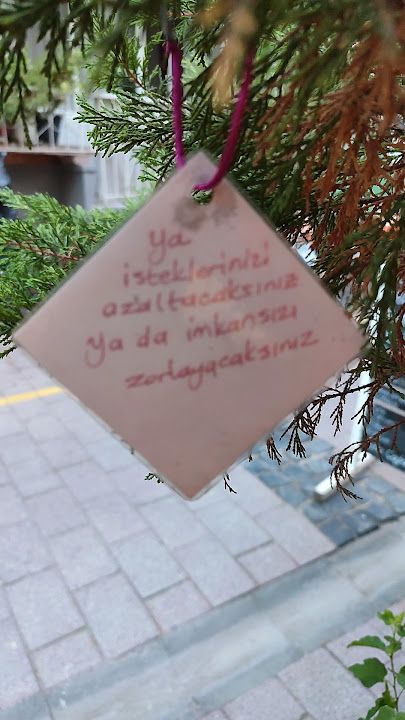 Ya
isteklerinizi
azaltacaksınız
ya da imkansızı
zorlayacaksınız...